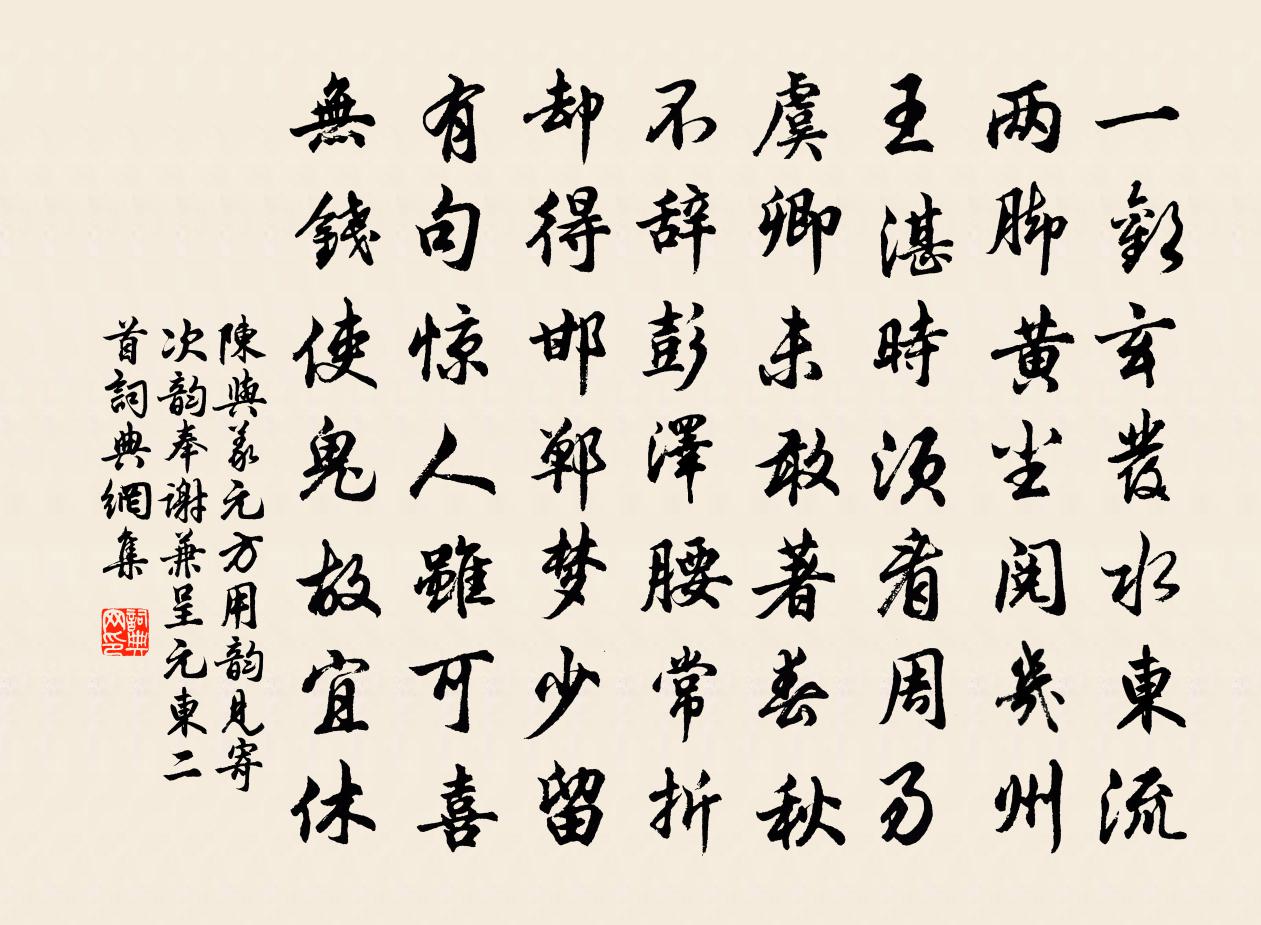 一歡玄發水東流
两脚黄尘閲幾州
王湛時須看周易
虞卿未敢著春秋
不辞彭澤腰常折
却得邯鄲梦少留
有句惊人雖可喜
無錢使鬼故宜休
陳與義元方用韵見寄
次韵奉謝兼呈元東二
首詞典網集
詞典网印